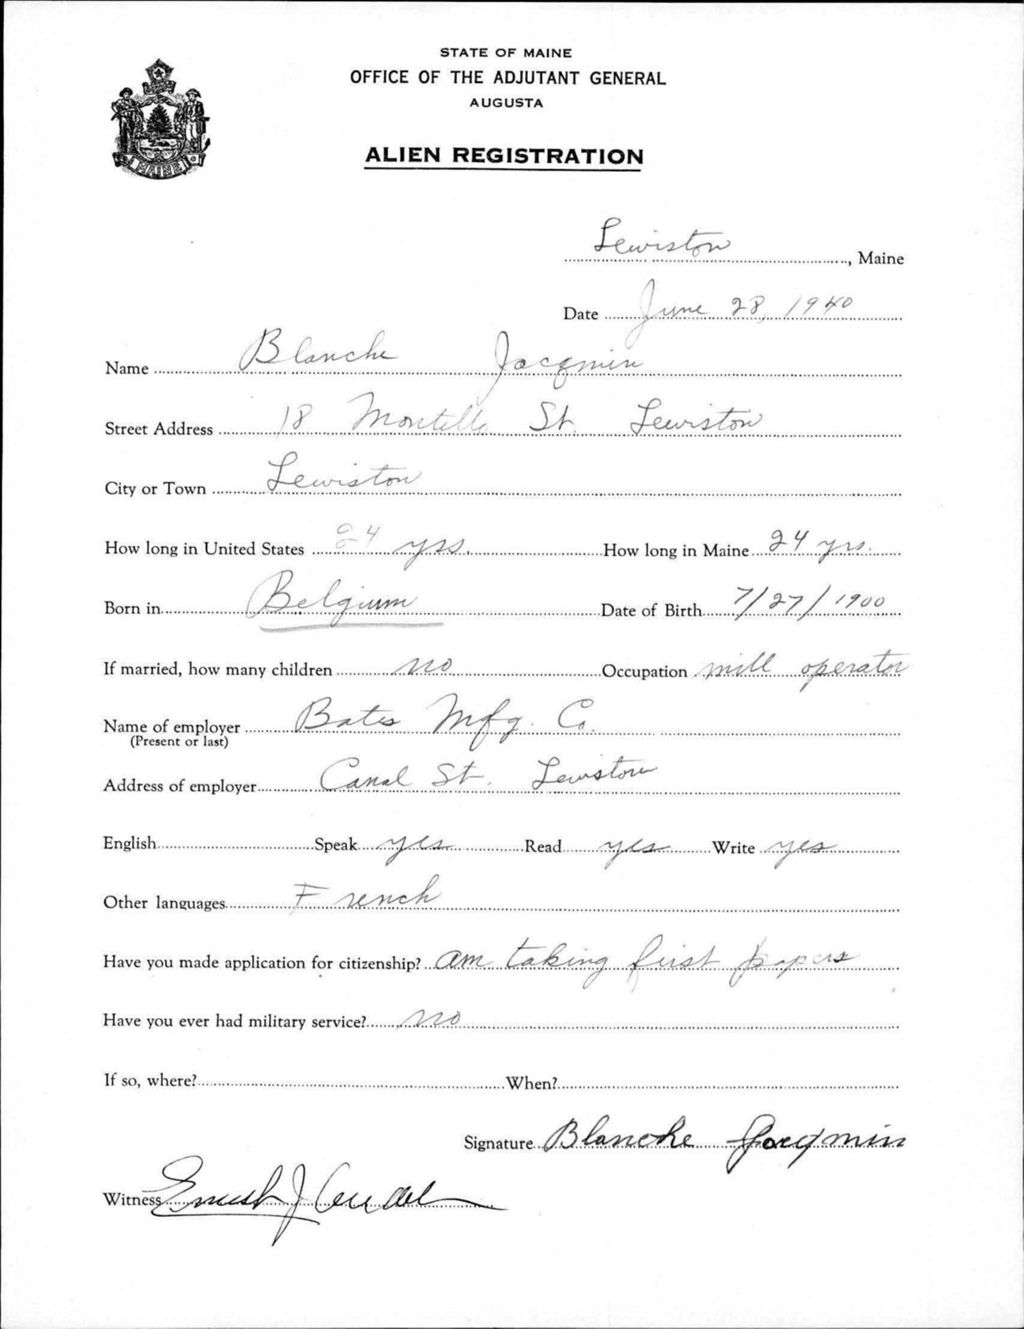 STATE OF MAINE
OFFICE OF THE ADJUTANT GENERAL
AUGUSTA
ALIEN REGISTRATION
MAINE
Lewiston, Maine
Date June 28, 1940
Name Blanche Jacqmin
Street Address 18 Montello St. Lewiston
City or Town Lewiston
How long in United States 24 yrs. How long in Maine 24 yrs.
Born in Belgium Date of Birth 7/27/1900
If married, how many children no Occupation mill operator
Name of employer Bates Mfg. Co.
(Present or last)
Address of employer Canal St. Lewiston
English Speak yes Read yes Write yes
Other languages French
Have you made application for citizenship? am taking first papers
Have you ever had military service? no
If so, where? When?
Signature Blanche Jacqmin
Witness J